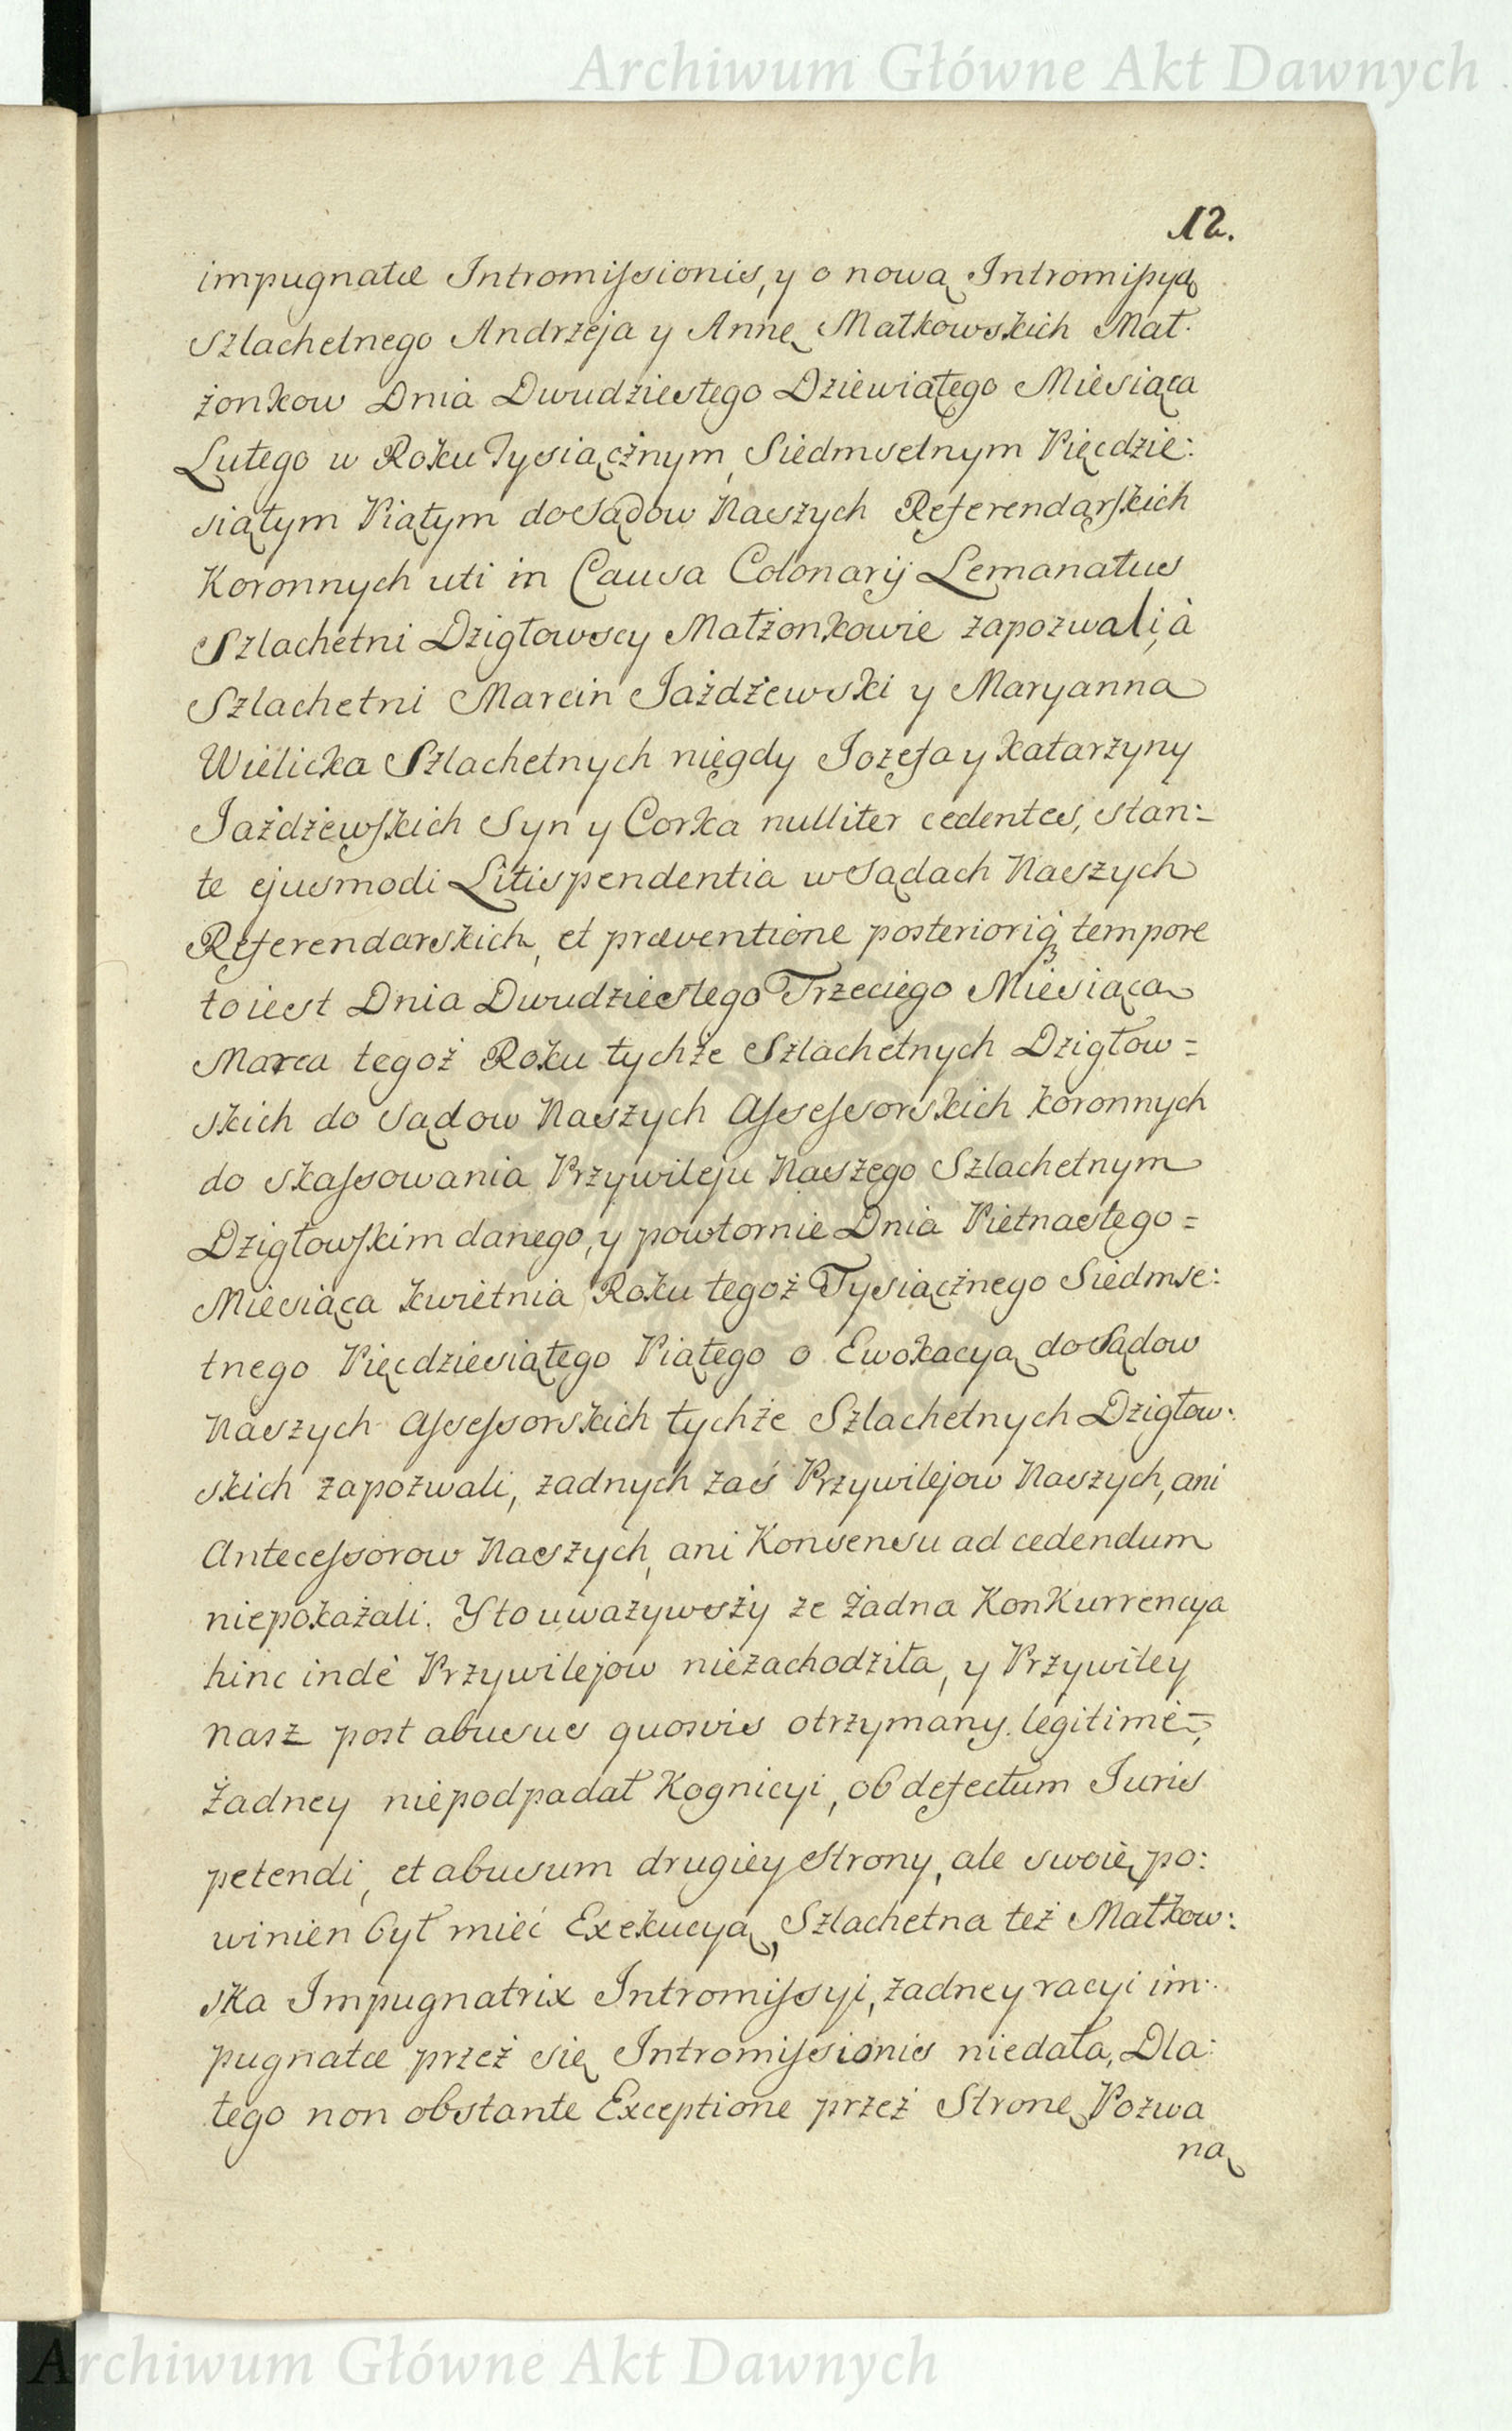 Archiwum Główne Akt Dawnych
12.
impugnatæ Intromissionis, y o nową Intromissyą
Szlachetnego Andrzeja y Annę Małkowskich Mał:
żonkow Dnia Dwudziestego Dziewiątego Miesiąca
Lutego w Roku Tysiącżnym Siedmsetnym Pięcdzie:
siątym Piątym do Sądow Naszych Referendarskich
Koronnych uti in Causa Colonarij Lemanatus
Szlachetni Dzigłowscy Małżonkowie zapozwali, à
Szlachetni Marcin Jażdżewski y Maryanna
Wielicka Szlachetnych niegdy Jozefa y Katarzyny
Jażdżewskich Syn y Corka nulliter cedentes, stan:
te ejusmodi Litispendentia w Sądach Naszych
Referendarskich, et præventione posterioriq; tempore
to iest Dnia Dwudziestego Trzeciego Miesiąca
Marca tegoż Roku tychże Szlachetnych Dzigłow=
skich do Sądow Naszych Assessorskich Koronnych
do skassowania Przywileju Naszego Szlachetnym
Dzigłowskim danego, y powtornie Dnia Pietnastego=
Miesiąca Kwietnia Roku tegoż Tysiącżnego Siedmse:
tnego Pięcdziesiątego Piątego o Ewokacyą do Sądow
Naszych Assessorskich tychże Szlachetnych Dzigłow:
skich zapozwali, żadnych zaś Przywilejow Naszych, ani
Antecessorow Naszych, ani Konsensu ad cedendum
niepokażali. Y to uważywszy że żadna Konkurrencya
hinc indè Przywilejow niezachodziła, y Przywiley
nasz post abusus quosvis otrzymany legitimè=,
żadney niepodpadał Kognicyi, ob defectum Juris
petendi, et abusum drugiey strony, ale swoię po:
winien był mieć Exekucyą, Szlachetna też Małkow:
ska Impugnatrix Intromissyi, żadney racyi im:
pugnatæ przez się Intromissionis niedała, Dla:
tego non obstante Exceptione przez Stronę Pozwa
ną
Archiwum Główne Akt Dawnych